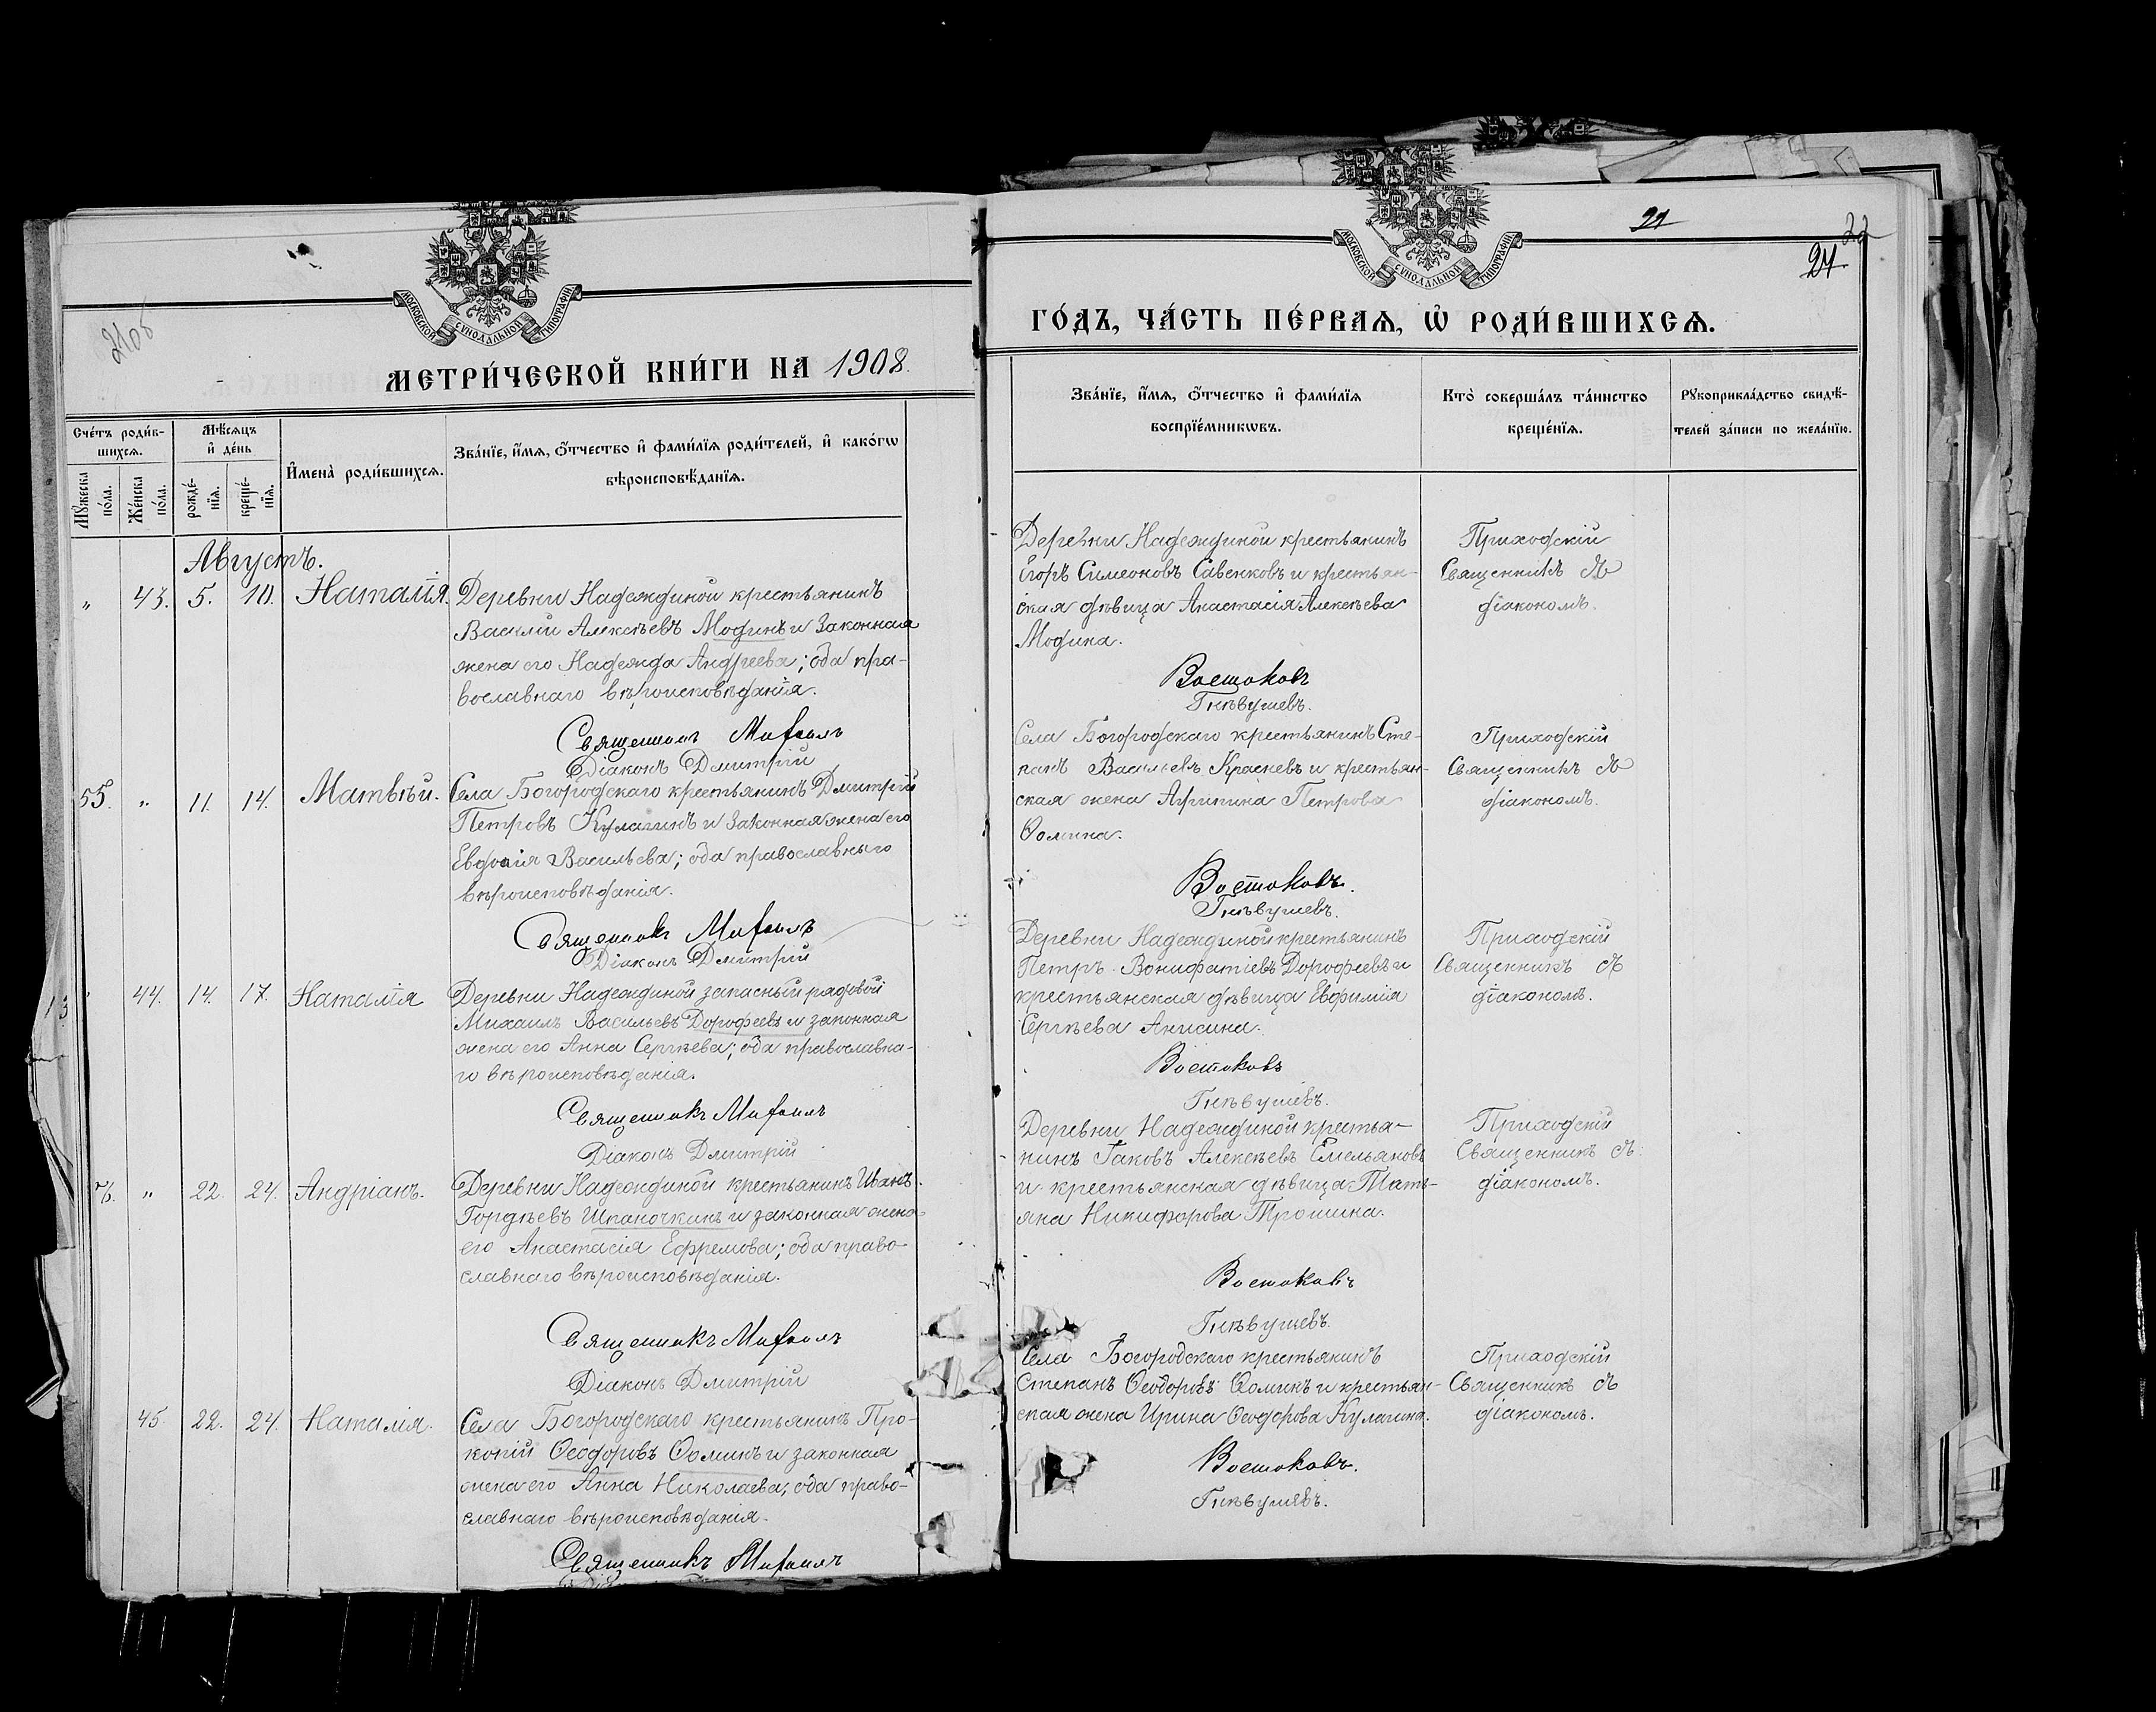 МОСКОВСКОЙ СУНОДАЛЬНОЙ ТИПОГРАФІИ
МЕТРИ́ЧЕСКОЙ КНИ́ГИ НА 1908.
Сче́тъ роди́в-
шихсѧ.
Мѣ́сѧцъ
и҆ де́нь
Мꙋ́жеска
по́ла.
Же́нска
по́ла.
рожде́-
нїѧ.
креще́-
нїѧ.
И҆мена̀ роди́вшихсѧ.
Зва́нїе, и҆́мѧ, ѻ҆́тчество и҆ фами́лїѧ роди́телей, и҆ како́гѡ
вѣроисповѣ́данїѧ.
Августъ.
„ 43. 5. 10. Наталія.
Деревни Надеждиной крестьянинъ
Василій Алексѣевъ Модинъ и законная
жена его Надежда Андреева; оба пра-
вославнаго вѣроисповѣданія.
Священникъ Михаилъ
Діаконъ Дмитрій
55. „ 11. 14. Матвѣй.
Села Богородскаго крестьянинъ Дмитрій
Петровъ Кулагинъ и законная жена его
Евдокія Васильева; оба православнаго
вѣроисповѣданія.
Священникъ Михаилъ
Діаконъ Дмитрій
44. 14. 17. Наталія
Деревни Надеждиной запасный рядовой
Михаилъ Васильевъ Дорофеевъ и законная
жена его Анна Сергѣева; оба православна-
го вѣроисповѣданія.
Священникъ Михаилъ
Діаконъ Дмитрій
„ 22. 24. Андріанъ.
Деревни Надеждиной крестьянинъ Иванъ
Гордѣевъ Шпаночкинъ и законная жена
его Анастасія Ефремова; оба право-
славнаго вѣроисповѣданія.
Священникъ Михаилъ
Діаконъ Дмитрій
45. 22. 24. Наталія.
Села Богородскаго крестьянинъ Про-
копій Ѳеодоровъ Ѳоминъ и законная
жена его Анна Николаева; оба право-
славнаго вѣроисповѣданія.
Священникъ Михаилъ
МОСКОВСКОЙ СУНОДАЛЬНОЙ ТИПОГРАФІИ
21
22
ГО́ДЪ, ЧА́СТЬ ПЕ́РВАѦ, Ѡ҆ РОДИ́ВШИХСѦ.
Зва́нїе, и҆́мѧ, ѻ҆́тчество и҆ фами́лїѧ
воспрїе́мникѡвъ.
Кто̀ соверша́лъ та́инство
креще́нїѧ.
Рꙋкоприкла́дство свидѣ́-
телей за́писи по жела́нїю.
Деревни Надеждиной крестьянинъ
Егоръ Симеоновъ Савенковъ и крестьян-
ская дѣвица Анастасія Алексѣева
Модина.
Приходскій
Священникъ съ
діакономъ.
Востоковъ
Гнѣвушевъ.
Села Богородскаго крестьянинъ Сте-
панъ Васильевъ Краснevъ и крестьян-
ская жена Агрипина Петрова
Ѳомина.
Приходскій
Священникъ съ
діакономъ.
Востоковъ.
Гнѣвушевъ.
Деревни Надеждиной крестьянинъ
Петръ Вонифатіевъ Дорофеевъ и
крестьянская дѣвица Евфимія
Сергѣева Анисина.
Приходскій
Священникъ съ
діакономъ.
Востоковъ
Гнѣвушевъ.
Деревни Надеждиной крестья-
нинъ Іаковъ Алексѣевъ Емельяновъ
и крестьянская дѣвица Тать-
яна Никифорова Трошина.
Приходскій
Священникъ съ
діакономъ.
Востоковъ
Гнѣвушевъ.
Села Богородскаго крестьянинъ
Степанъ Ѳеодоровъ Ѳоминъ и крестьян-
ская жена Ирина Ѳеодорова Кулагина.
Приходскій
Священникъ съ
діакономъ.
Востоковъ.
Гнѣвушевъ.